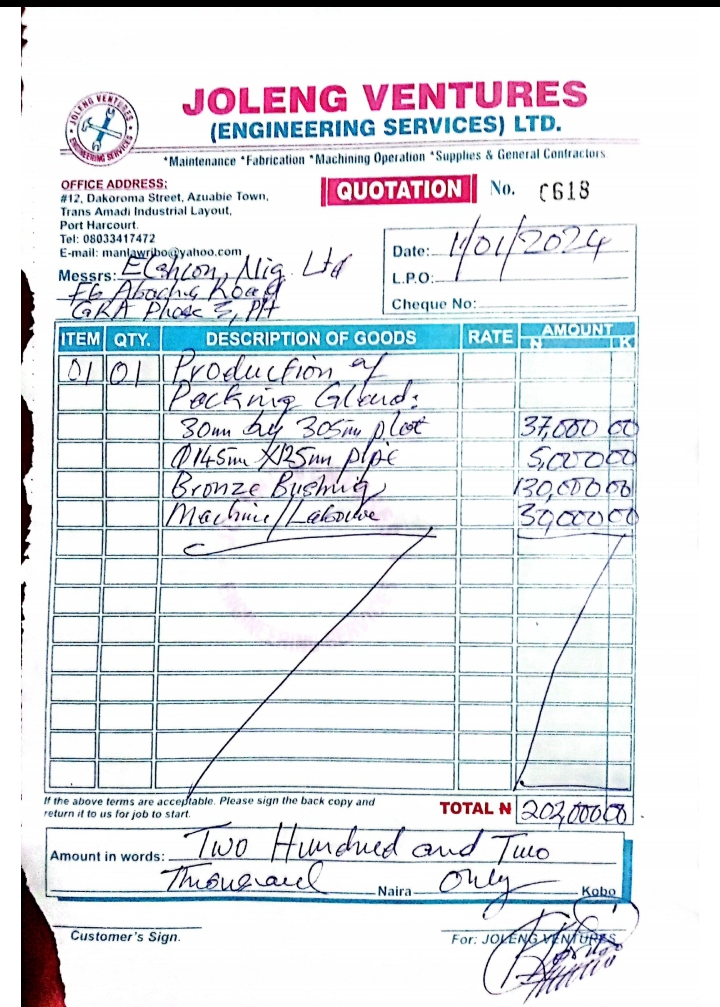 JOLENG VENTURES
ENGINEERING SERVICES
JOLENG VENTURES
(ENGINEERING SERVICES) LTD.
*Maintenance *Fabrication *Machining Operation *Supplies & General Contractors
OFFICE ADDRESS:
#12, Dakoroma Street, Azuabie Town,
Trans Amadi Industrial Layout,
Port Harcourt.
Tel: 08033417472
E-mail: manlawribo@yahoo.com
QUOTATION No. C618
Date: 11/01/2024
L.P.O:
Cheque No:
Messrs: Nig. Ltd
Road
GRA Phase 3, PH
ITEM QTY. DESCRIPTION OF GOODS RATE AMOUNT
N K
01 01 Production of
Packing Gland:
30mm by 305mm plat 37,000 00
Φ145mm X125mm pipe 5,000 00
Bronze Bushing 130,000 00
Machine/Labour 30,000 00
If the above terms are acceptable. Please sign the back copy and
return it to us for job to start.
TOTAL N 202,000 00
Amount in words: Two Hundred and Two
Thousand Naira Only Kobo
Customer's Sign.
For: JOLENG VENTURES